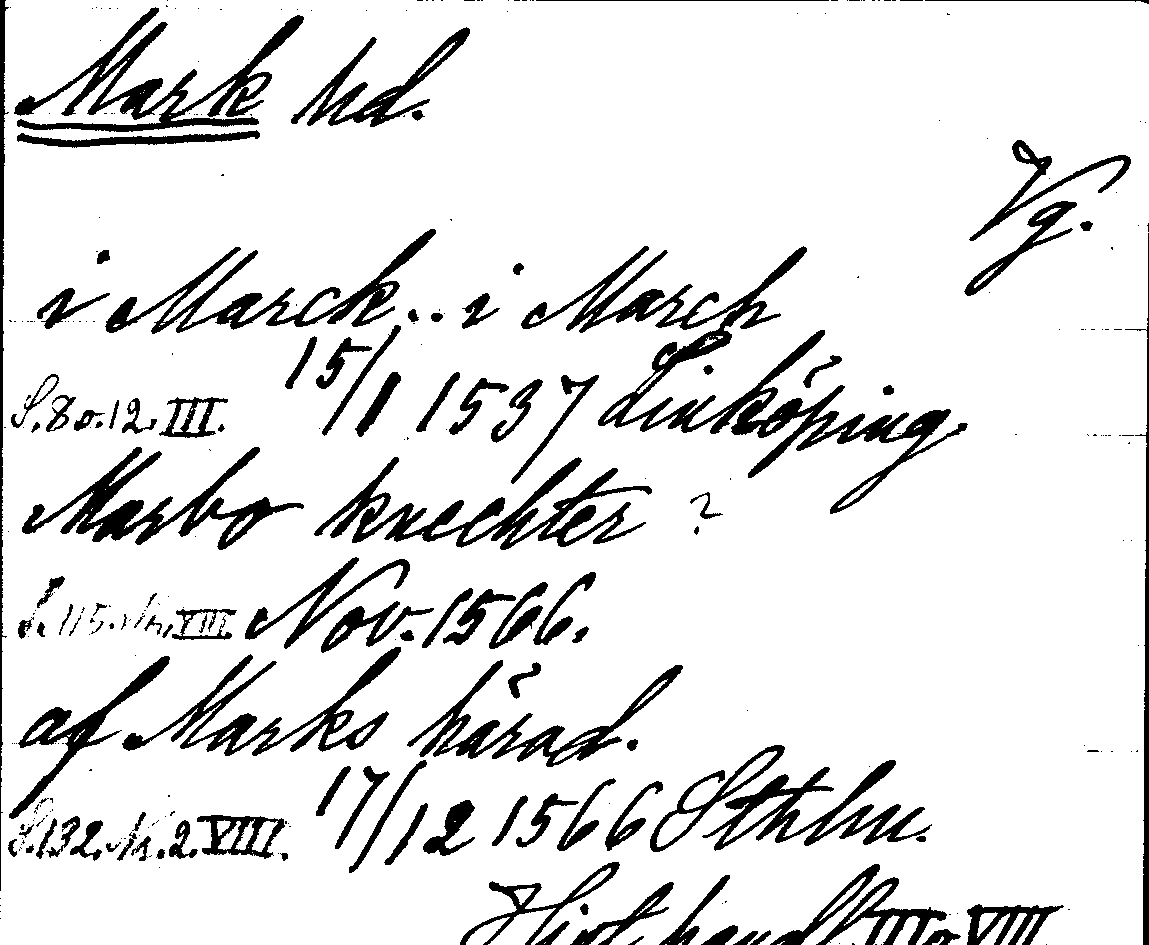 Mark hd.
Vg.
i Marck.. i March
S. 80. 12. III. 15/1 1537 Linköping.
Marbo knechter ?
S. 115. VIII. Nov. 1566.
af Marks härad.
S. 132. N. 2. VIII. 17/12 1566 Sthlm.
Hist. handl. III o VIII